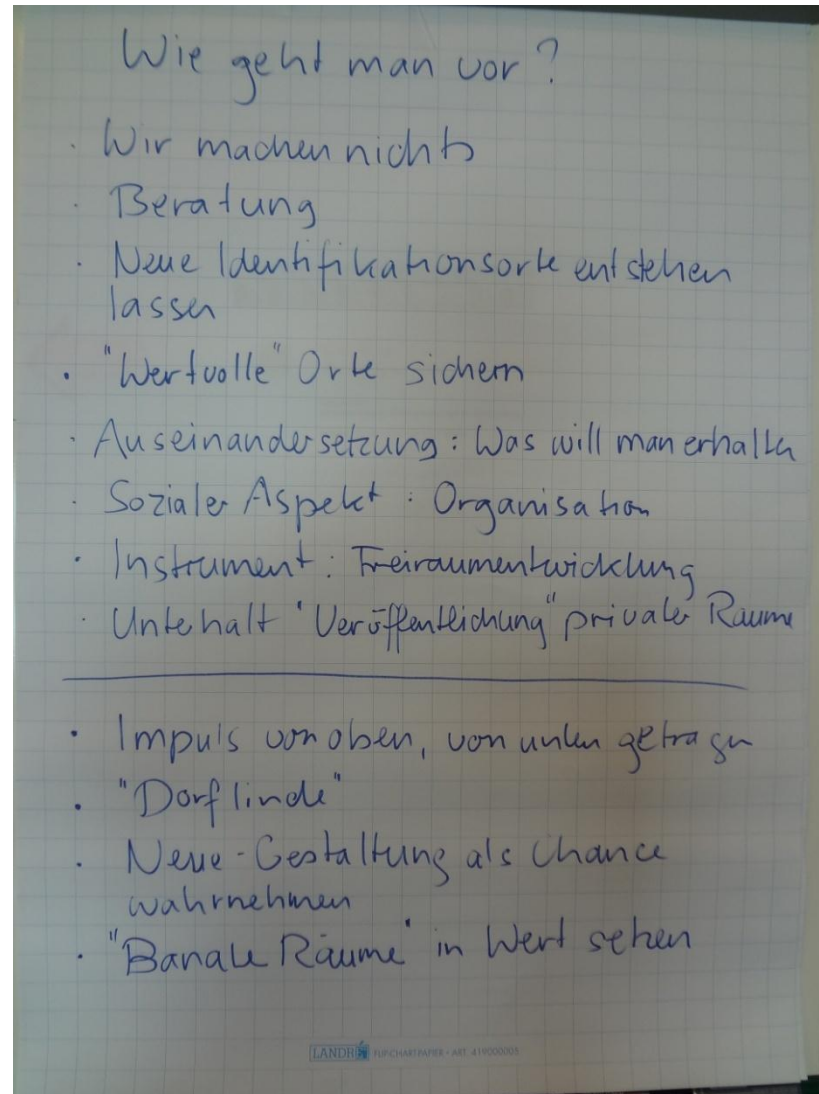 Wie geht man vor?
· Wir machen nichts
· Beratung
· Neue Identifikationsorte entstehen
lassen
· "Wertvolle" Orte sichern
· Auseinandersetzung: Was will man erhalten
· Sozialer Aspekt: Organisation
· Instrument: Freiraumentwicklung
· Unterhalt "Veröffentlichung" privater Räume
· Impuls von oben, von unten getragen
· "Dorflinde"
· Neue-Gestaltung als Chance
wahrnehmen
· "Banale Räume" in Wert setzen
LANDRÉ FLIPCHARTPAPIER · ART. 419000005